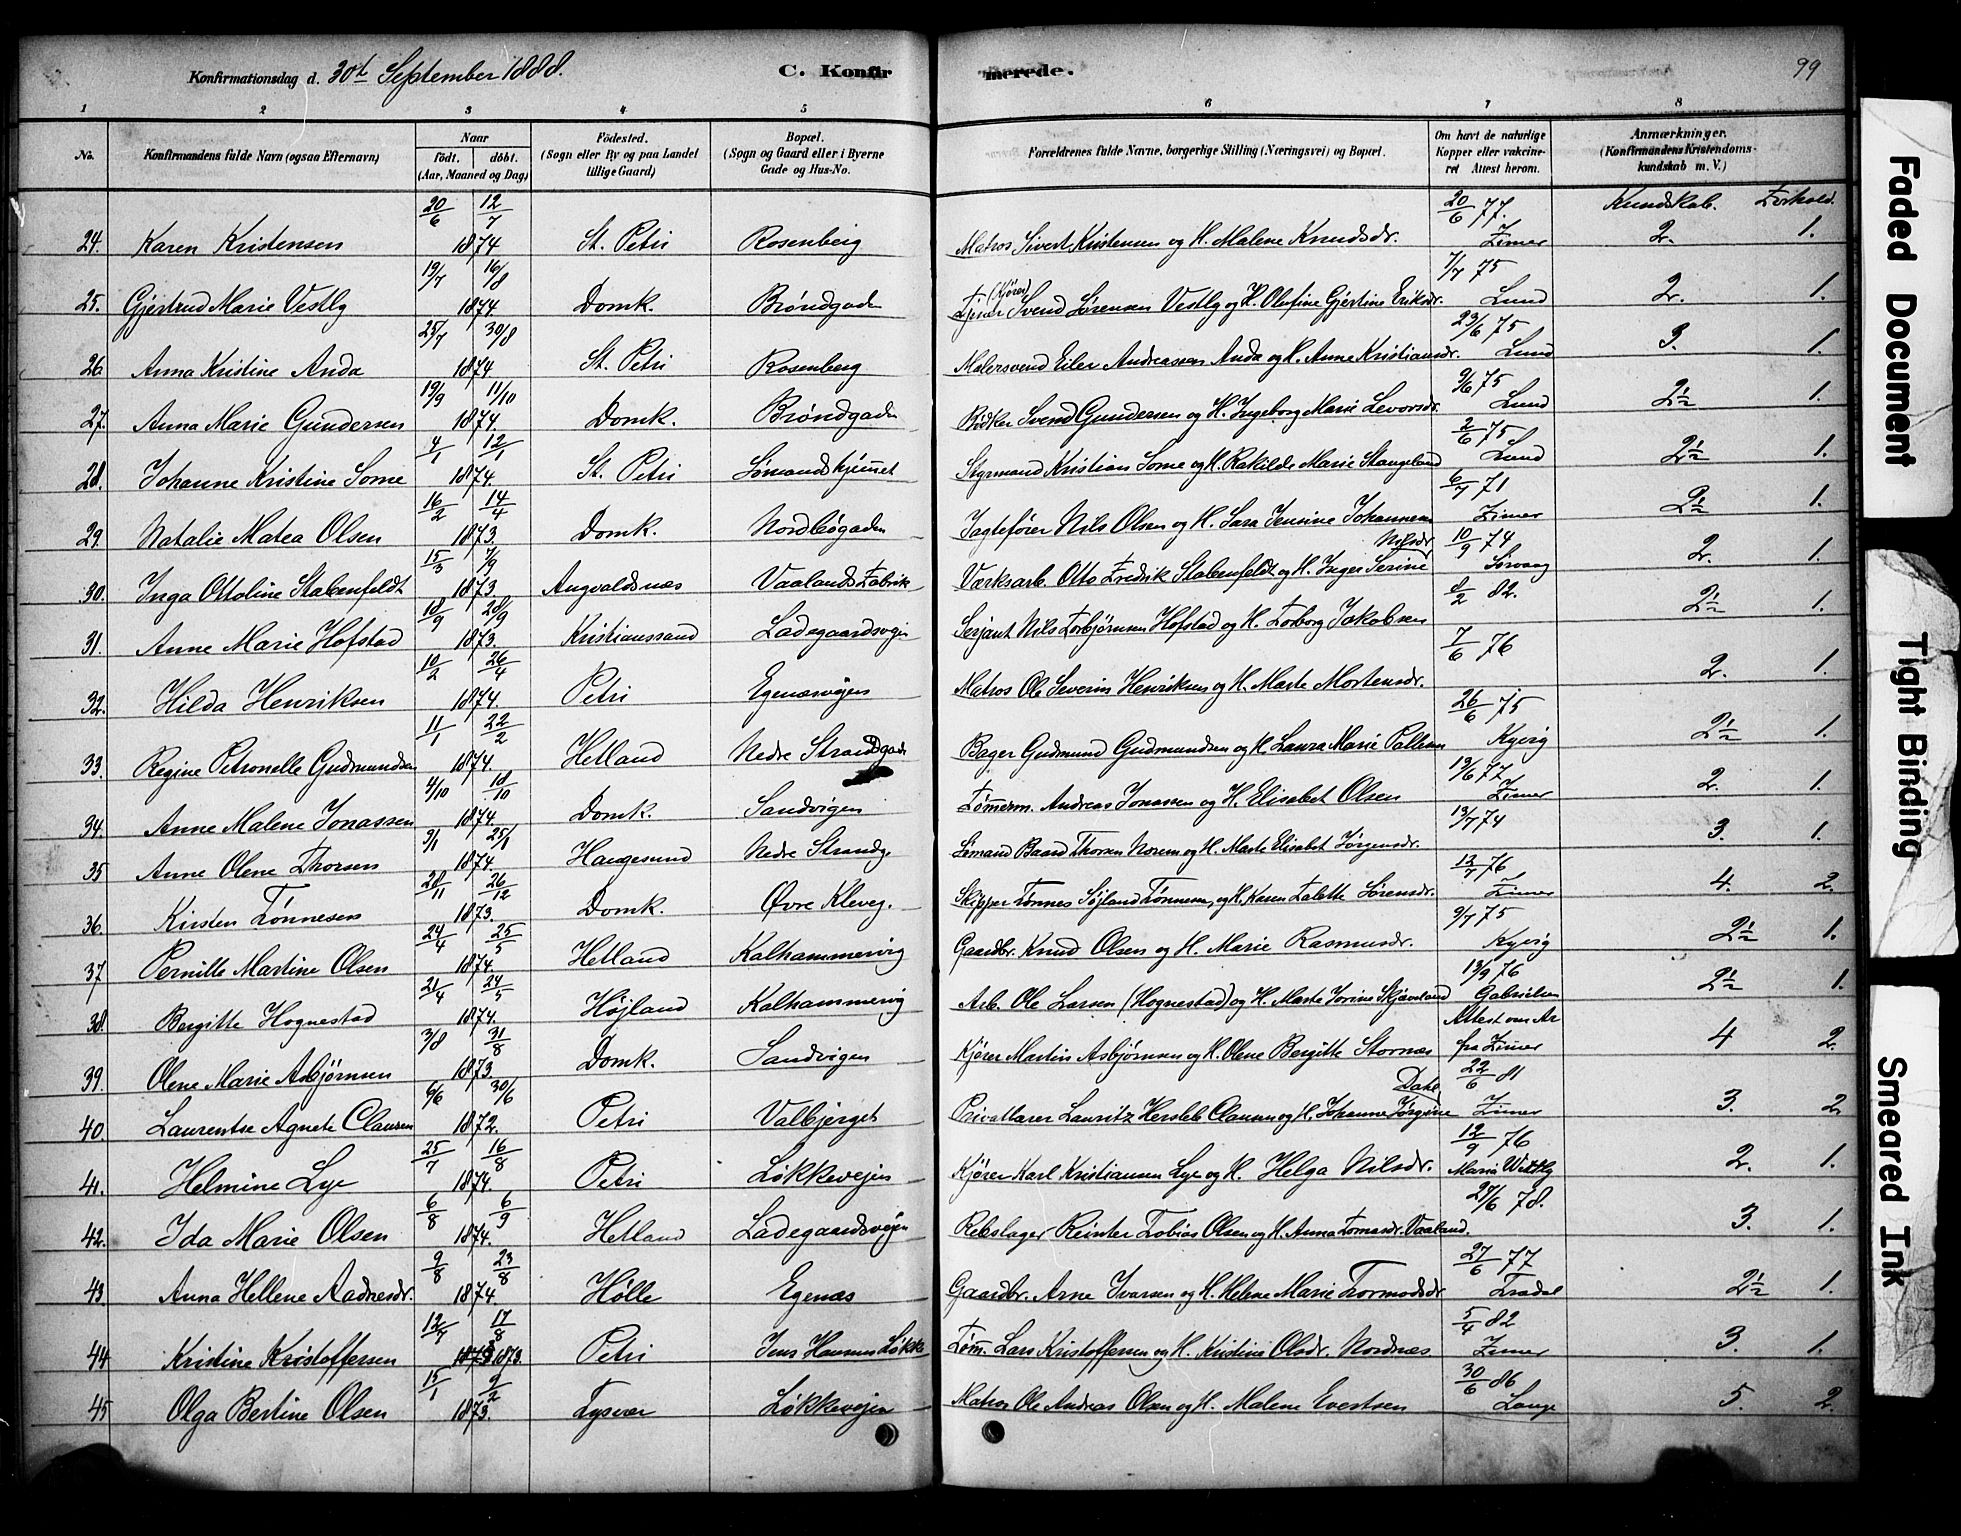 Konfirmationsdag d. 30te September 1888. C. Konfirmerede. 99
1 2 3 4 5 6 7 8
No. Konfirmandens fulde Navn (ogsaa Efternavn) Naar födt. döbt. (Aar, Maaned og Dag) Födested. (Sogn eller By og paa Landet tillige Gaard) Bopæl. (Sogn og Gaard eller i Byerne Gade og Hus-No. Forældrenes fulde Navne, borgerlige Stilling (Næringsvei) og Bopæl. Om havt de naturlige Kopper eller vakcineret Attest herom. Anmærkninger. (Konfirmandens Kristendomskundskab m. V.)
Kundskab. Forhold.
24. Karen Kristensen 20/6 12/7 1874 St. Petri Rosenberg Matros Sivert Kristensen og H. Malene Knudsdr. 20/6 77. Zimer 2. 1.
25. Gjertrud Marie Vestly 19/7 16/8 1874 Domk. Bröndgaden Tjener (Kjører) Svend Sørensen Vestly og H. Olufine Gjertine Eriksdr. 7/7 75 Lund 2. 1.
26 Anna Kristine Anda 25/7 30/8 1874 St. Petri Rosenberg Malersvend Eiler Andreassen Anda og H. Anne Kristiansdr. 23/6 75 Lund 3. 1.
27. Anna Marie Gundersen 19/9 11/10 1874. Domk. Bröndgaden Bödker Svend Gundersen og H. Ingeborg Marie Levorsdr. 9/6 75 Lund 2½ 1.
28. Johanne Kristine Some 4/1 12/1 1874. St. Petri Sömandshjemmet Styrmand Kristian Some og H. Rakilde Marie Stangeland 2/6 75 Lund 2½ 1.
29. Natalie Matea Olsen 16/2 14/4 1873. Domk. Nordbøgaden Jagtefører Nils Olsen og H. Sara Jensine Johannesen 6/7 71 Zimer 2½ 1.
30. Inga Ottoline Stabenfeldt 15/3 7/9 1873 Augvaldsnæs Vaalands Fabrik Værksarb. Otto Fredrik Stabenfeldt og H. Inger Serine Nilsdr. 10/9 74 Sörvaag 2. 1.
31. Anne Marie Hofstad 18/9 28/9 1873. Kristianssand Ladegaardsvejen Serjant Nils Torbjörnsen Hofstad og H. Torborg Jakobsen 8/2 82. 2½ 1.
32. Hilda Henriksen 10/2 26/4 1874. Petri Egenæsvejen Matros Ole Severin Henriksen og H. Marte Mortensdr. 7/6 76 2. 1.
33. Regine Petronelle Gudmundsen 11/1 22/2 1874. Hetland Nedre Strandgade Bager Gudmund Gudmundsen og H. Laura Marie Pallesen 26/6 75 Kyvig 2½ 1.
34. Anne Malene Jonassen 4/10 18/10 1874. Domk. Sandvigen Tömerm. Andreas Jonassen og H. Elisabet Olsen 19/6 77 Zimer 2. 1.
35 Anne Olene Thorsen 9/1 25/1 1874 Haugesund Nedre Strandg. Sömand Baard Thorsen Norem og H. Marte Elisabet Jørgensdr. 13/7 74 3. 1.
36. Kirsten Tönnesen 28/11 26/12 1873. Domk. Øvre Kleveg. Skipper Tönnes Söjland Tönnesen og H. Karen Talette Sørensdr. 12/7 76 Zimer 4. 2.
37 Pernille Martine Olsen 24/4 25/5 1874. Hetland Kalhammervig Gaardbr. Knud Olsen og H. Marie Rasmusdr. 9/7 75 Kyvig 2½ 1.
38 Bergitte Hognestad 21/4 24/5 1874. Højland Kalhammervig Arb. Ole Larsen (Hognestad) og H. Marte Jorine Skjæveland 13/9 76 Gabrielsen 2½ 1.
39. Olene Marie Asbjörnsen 3/8 31/8 1873. Domk. Sandvigen Kjører Martin Asbjørnsen og H. Olene Bergitte Stornæs Attest om Ar fra Zimer 4 2.
40 Laurentse Agnete Clausen 6/6 30/6 1872. Petri Valbjerget Privatlærer Lauritz Hersleb Clausen og H. Johanne Jørgine Dahl 22/6 81 Zimer 3. 2.
41. Helmine Lye 25/7 16/8 1874. Petri Løkkevejen Kjører Karl Kristiansen Lye og H. Helga Nilsdr. 12/9 76 Marie 2. 1.
42. Ida Marie Olsen 6/8 6/9 1874. Hetland Ladegaardsvejen Rebslager Reinter Tobias Olsen og H. Anna Tomasdr. Vaaland. 27/6 78. 3. 1.
43. Anna Hellene Aadnesdr. 9/8 23/8 1874 Hölle Egenæs Gaardbr. Arne Ivarsen og H. Helene Marie Tormodsdr 27/6 77 Tradal 2½ 1.
44 Kristine Kristoffersen 12/7 17/8 1873 1873. Petri Jens Løkke Töm. Lars Kristoffersen og H. Kristine Olsdr. Nordnæs. 5/4 82 Zimer 3. 1.
45 Olga Bertine Olsen 15/1 2/2 1873. Tysvær Løkkevejen Matros Ole Andreas Olsen og H. Malene Evertsen 30/6 86 Lange 5. 2.
Faded Document
Tight Binding
Smeared Ink